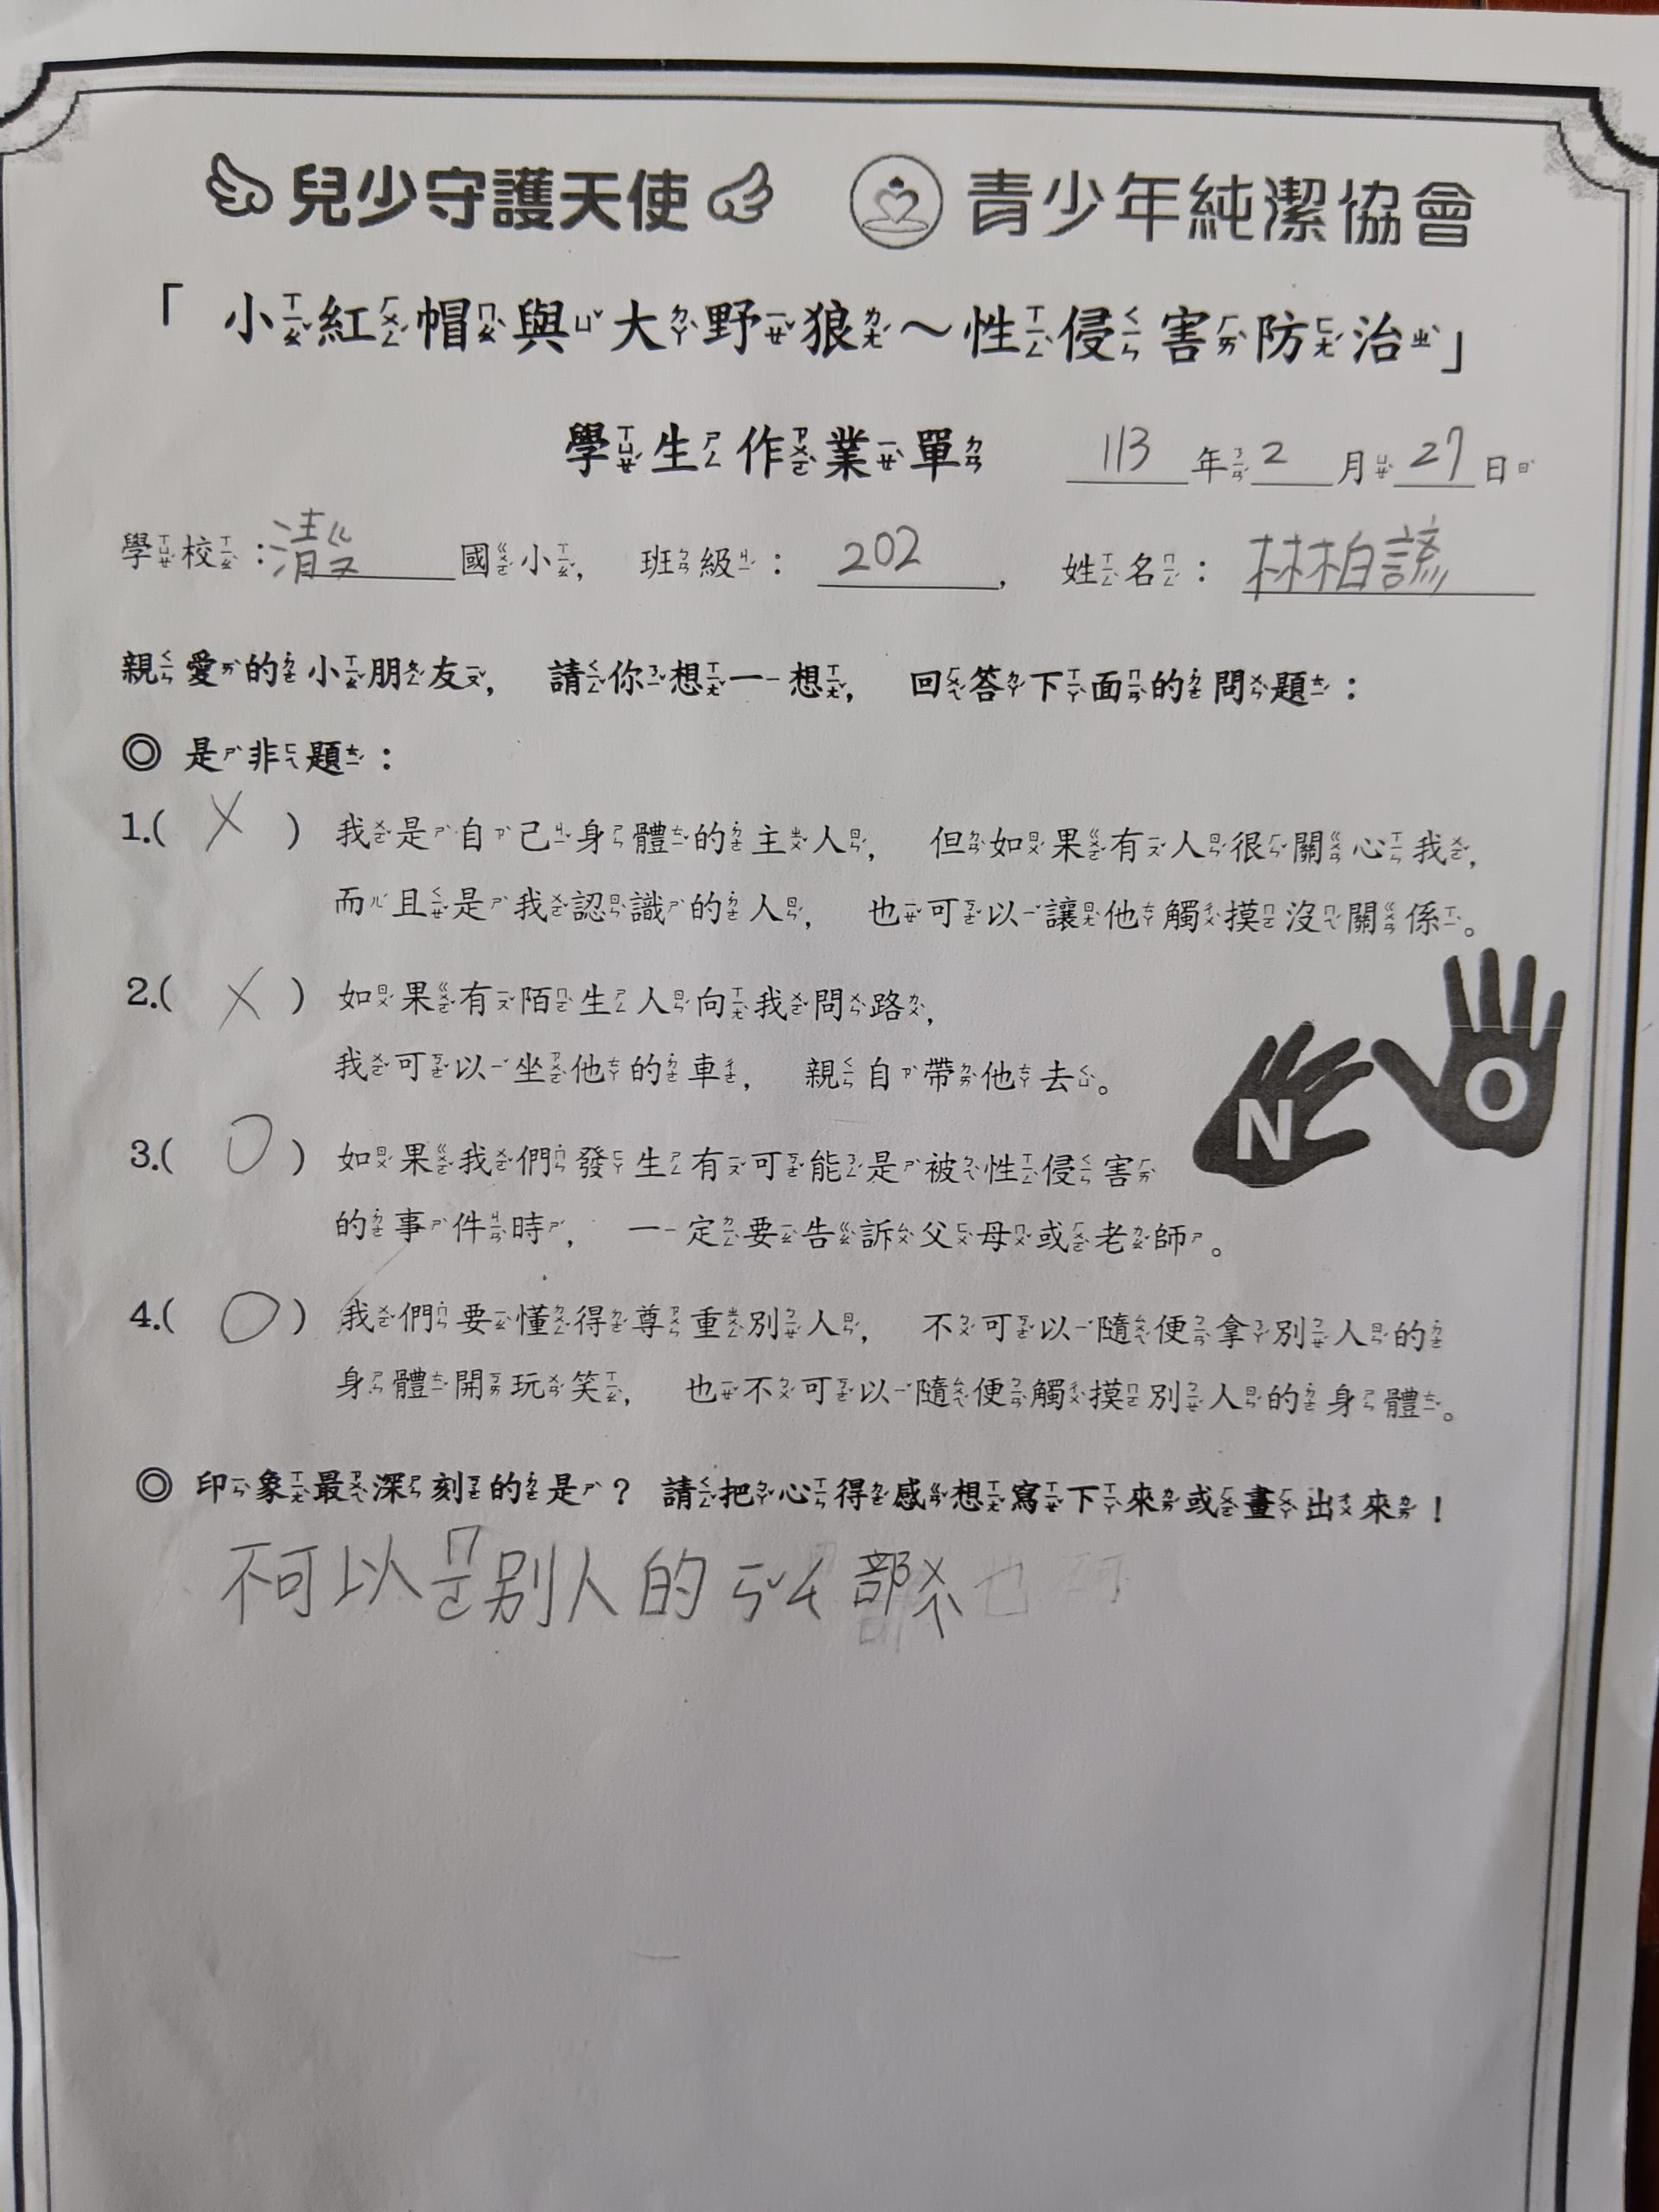 兒少守護天使 青少年純潔協會
「小紅帽與大野狼～性侵害防治」
學生作業單 113年2月27日
學校：清 國小， 班級：202， 姓名：林柏諺
親愛的小朋友， 請你想一想， 回答下面的問題：
◎ 是非題：
1.( X ) 我是自己身體的主人， 但如果有人很關心我，
而且是我認識的人， 也可以讓他觸摸沒關係。
2.( X ) 如果有陌生人向我問路，
我可以坐他的車， 親自帶他去。
NO
3.( O ) 如果我們發生有可能是被性侵害
的事件時， 一定要告訴父母或老師。
4.( O ) 我們要懂得尊重別人， 不可以隨便拿別人的
身體開玩笑， 也不可以隨便觸摸別人的身體。
◎ 印象最深刻的是？ 請把心得感想寫下來或畫出來！
不可以ㄇㄛ別人的 部